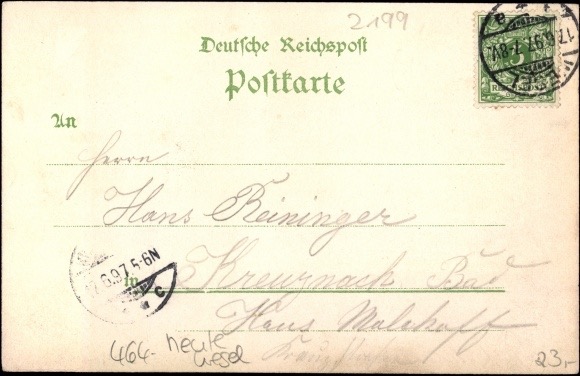 2199
Deutsche Reichspost
Postkarte
17.6.97.7-8V.
An
Herrn
Hans Reininger
6.97.5-6N
c
in Kreuznach Bad
Haus Malakoff
464- heute
23,-